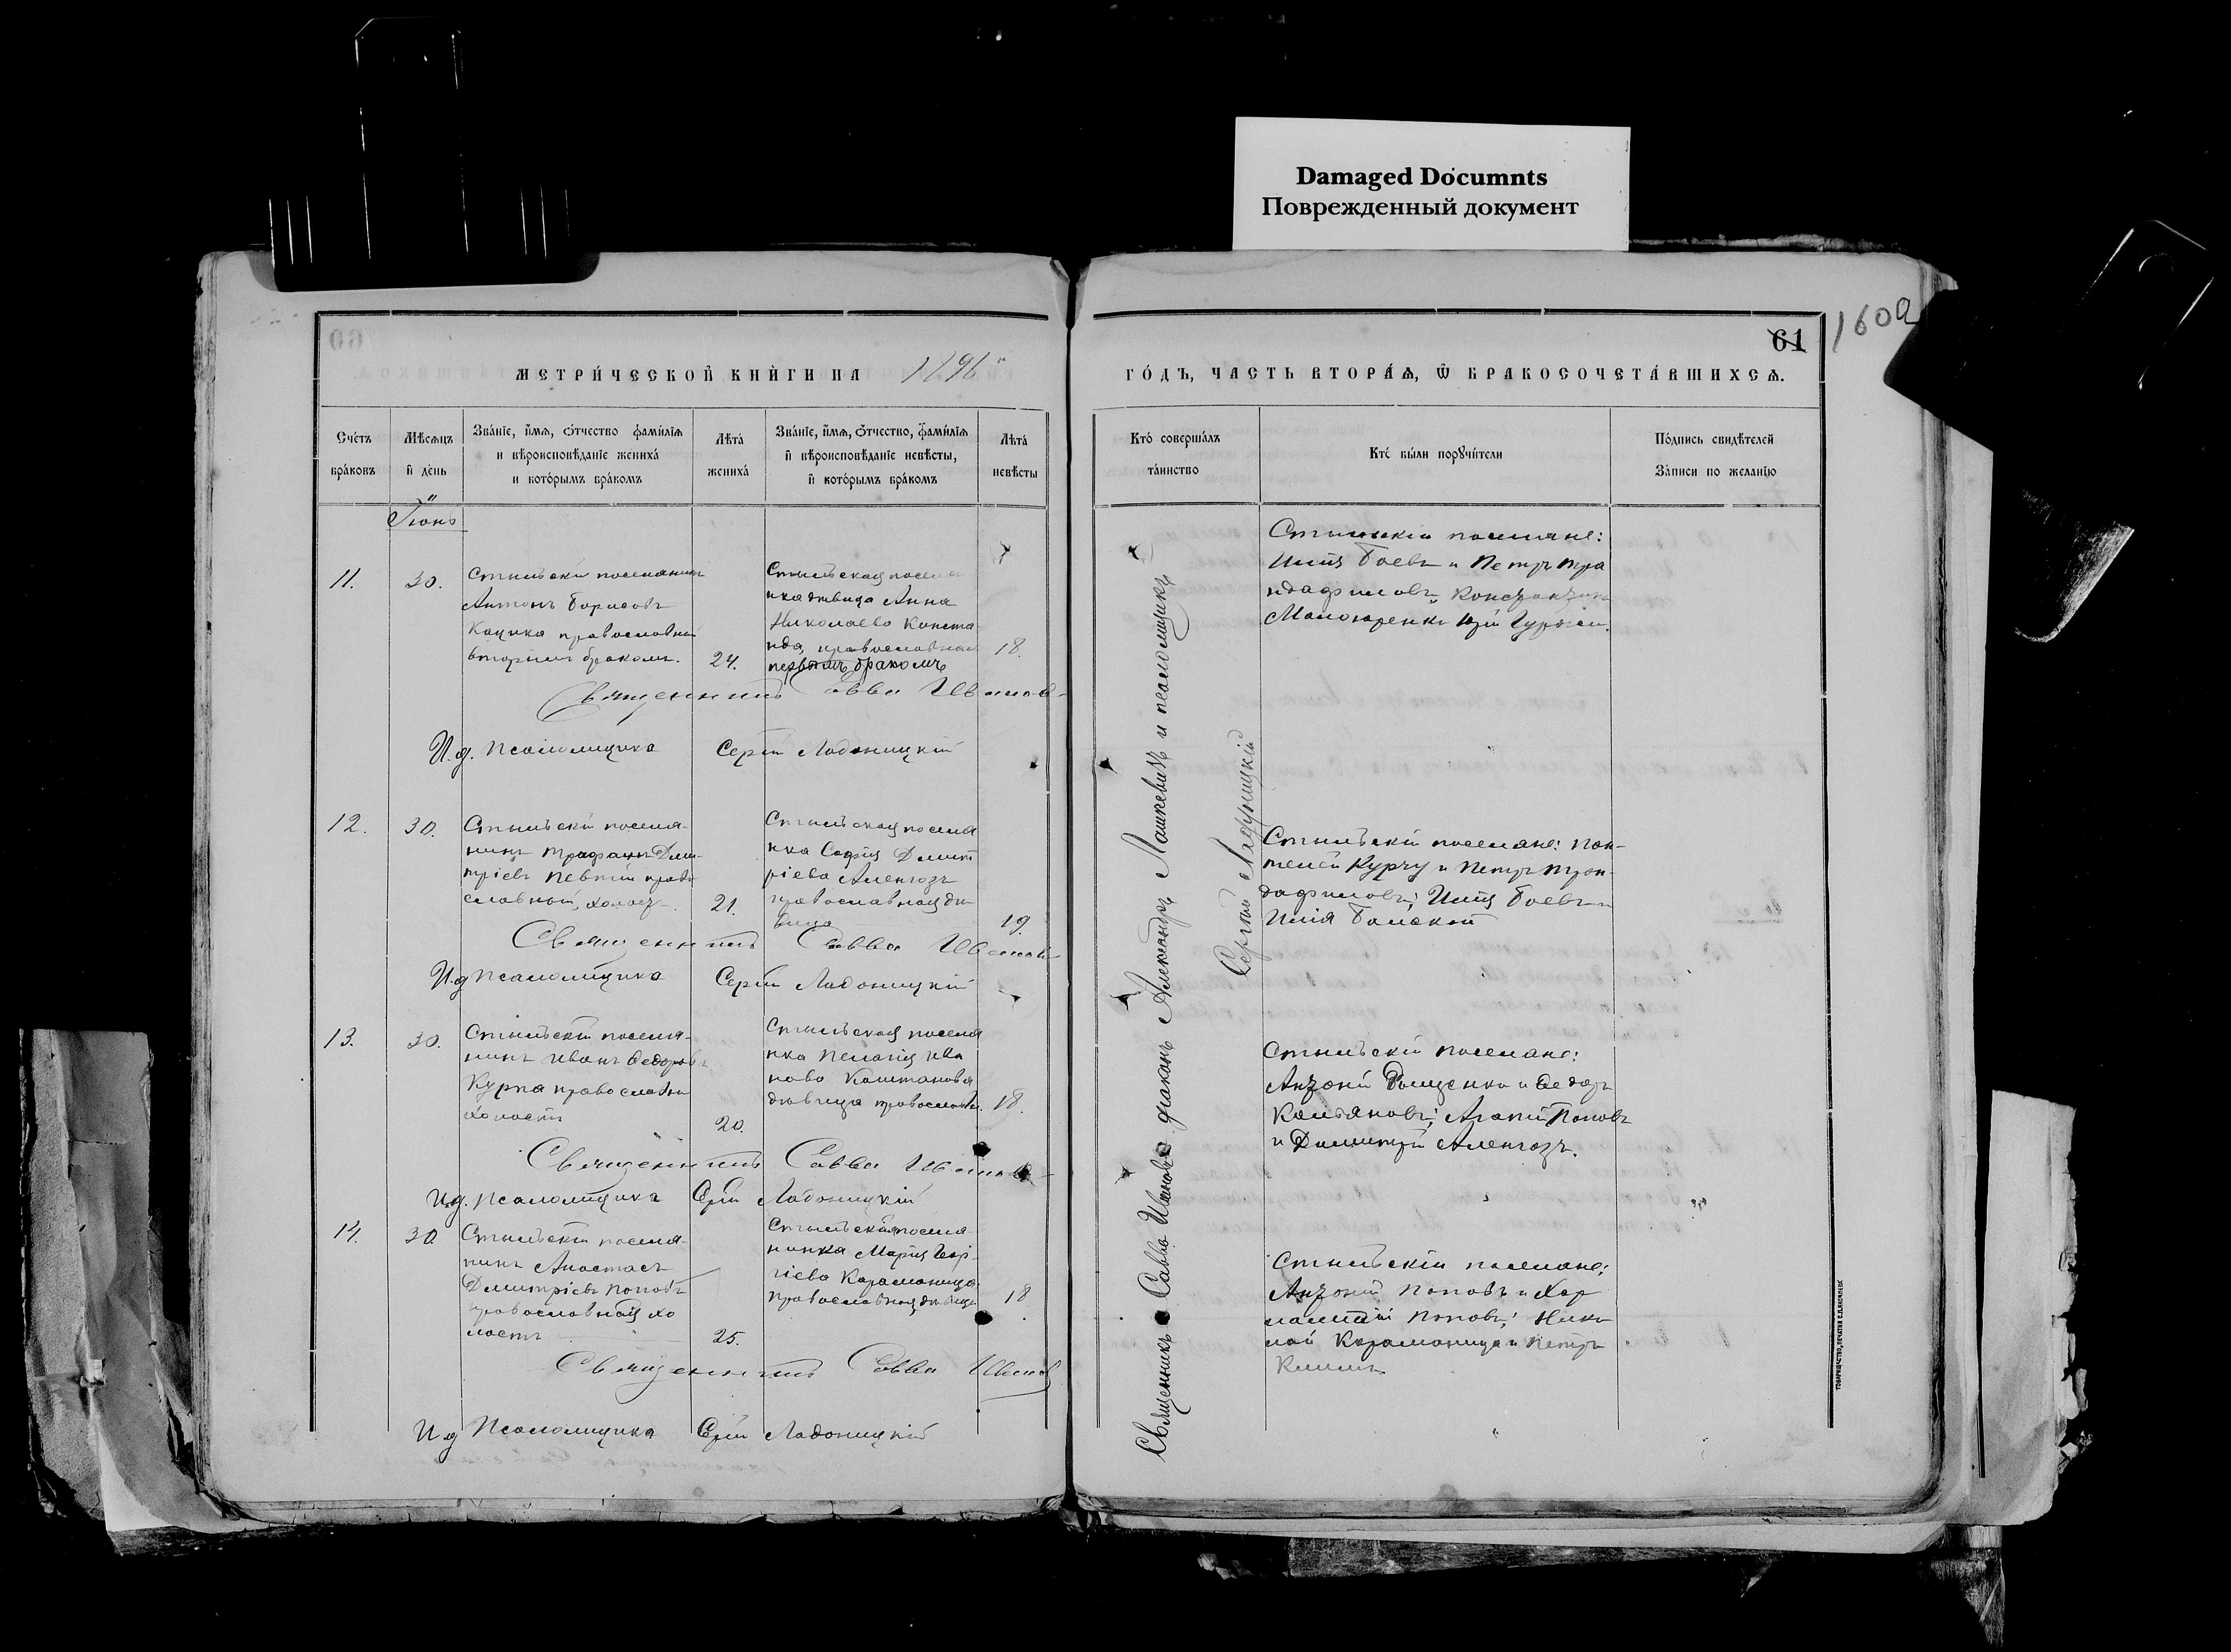 Damaged Documnts
Поврежденный документ
60
МЕТРИ́ЧЕСКОЙ КНИ́ГИ НА 1896
Сче́тъ бра́ковъ
Мѣ́сѧцъ и҆ де́нь
Зва́нїе, и҆́мѧ, ѻ҆́тчество фами́лїѧ
и вѣроисповѣ́данїе жениха́
и кото́рымъ бра́комъ
Лѣ́та жениха́
Зва́нїе, и҆́мѧ, ѻ҆́тчество, фами́лїѧ
и҆ вѣроисповѣ́данїе невѣ́сты,
и҆ кото́рымъ бра́комъ
Лѣ́та невѣ́сты
Іюнь
11.
30.
Стыльскій поселянинъ
Антонъ Борисовъ
Кацика православный
вторымъ бракомъ.
24.
Стыльская поселя
нка дѣвица Анна
Николаева Конста
нда, православная
первымъ бракомъ
18.
Священникъ Савва Ивановъ
И.д. Псаломщика Сергій Ладоницкій
12.
30.
Стыльскій поселя-
нинъ Дми-
тріевъ право
славный, холостъ
21.
Стыльская поселя
нка Софія Димит
ріева Аленгозъ
православная дѣ
вица
19.
Священникъ Савва Ивановъ
И.д Псаломщика Сергій Ладоницкій
13.
30.
Стыльскій поселя-
нинъ Иванъ Ѳедоровъ
Курпа православный
холостъ
20.
Стыльская поселя
нка Пелагія Ива
нова Каштанова
дѣвица православн.
18.
Священникъ Савва Ивановъ
И.д. Псаломщика Сергій Ладоницкій
14.
30
Стыльскій поселя-
нинъ Анастасъ
Димитріевъ Поповъ
православный хо
лостъ
25.
Стыльская поселя-
нинка Марія Геор-
гіева Караманица
православная дѣвица
18
Священникъ Савва Ивановъ
И д Псаломщика Сергій Ладоницкій
61
160а
ГО́ДЪ, ЧАСТЬ ВТОРА́Ѧ, Ѡ҆ БРАКОСОЧЕТА́ВШИХСѦ.
Кто́ соверша́лъ
та́инство
Кто́ бы́ли порꙋчи́тели
По́дпись свидѣ́телей
За́писи по жела́нїю
Священникъ Савва Ивановъ діаконъ Александръ Лашкевичъ и псаломщикъ
Сергѣй Ладоницкій
Стыльскіи поселяне:
Илія Боевъ и Петръ Тра
ндафиловъ, Константинъ
Малоюренко
Стыльскіи поселяне: Пан-
телей Курчу и Петръ Тран-
дафиловъ; Илія Боевъ и
Илія
Стыльскіи поселяне:
Антоній и Ѳедоръ
Кальяновъ; Агапій Поповъ
и Димитрій Аленгозъ.
Стыльскіи поселяне:
Антоній Поповъ и Хар
лампій Поповъ; Нико
лай Караманица и Петръ